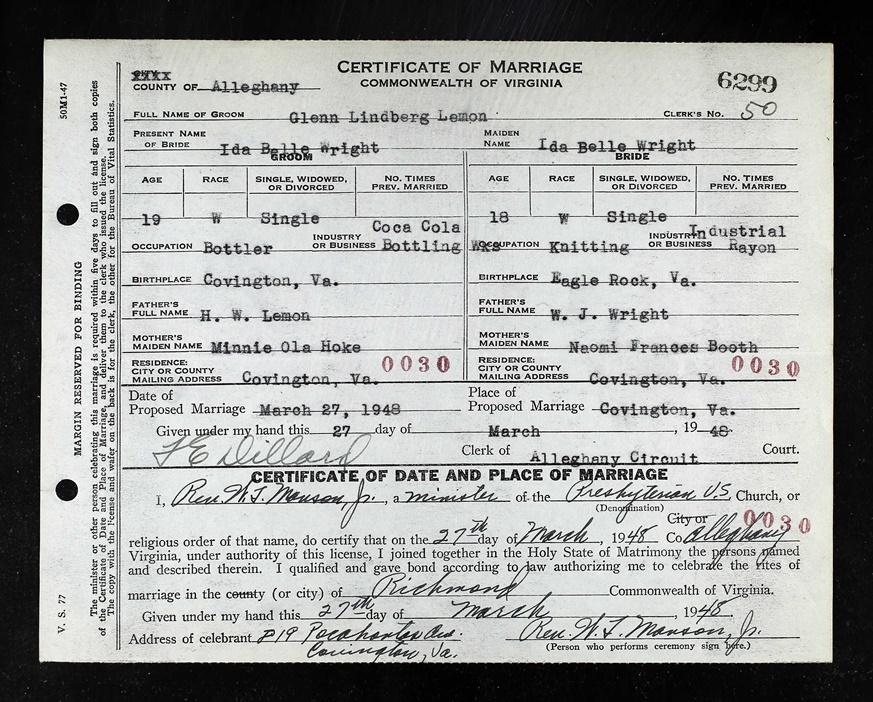 CERTIFICATE OF MARRIAGE
COMMONWEALTH OF VIRGINIA
6299
COUNTY OF Alleghany
FULL NAME OF GROOM Glenn Lindberg Lemon CLERK'S NO. 50
PRESENT NAME OF BRIDE Ida Belle Wright MAIDEN NAME Ida Belle Wright
GROOM BRIDE
AGE RACE SINGLE, WIDOWED, OR DIVORCED NO. TIMES PREV. MARRIED AGE RACE SINGLE, WIDOWED, OR DIVORCED NO. TIMES PREV. MARRIED
19 W Single 18 W Single
OCCUPATION Bottler INDUSTRY OR BUSINESS Coca Cola Bottling Wks OCCUPATION Knitting INDUSTRY OR BUSINESS Industrial Rayon
BIRTHPLACE Covington, Va. BIRTHPLACE Eagle Rock, Va.
FATHER'S FULL NAME H. W. Lemon FATHER'S FULL NAME W. J. Wright
MOTHER'S MAIDEN NAME Minnie Ola Hoke MOTHER'S MAIDEN NAME Naomi Frances Booth
RESIDENCE: CITY OR COUNTY MAILING ADDRESS Covington, Va. 0030 RESIDENCE: CITY OR COUNTY MAILING ADDRESS Covington, Va. 0030
Date of Proposed Marriage March 27, 1948 Place of Proposed Marriage Covington, Va.
Given under my hand this 27 day of March, 19 48.
F E Dillard Clerk of Alleghany Circuit Court.
CERTIFICATE OF DATE AND PLACE OF MARRIAGE
I, Rev. W. F. Manson, Jr., a minister of the Presbyterian U.S. Church, or
(Denomination)
City or 0030
religious order of that name, do certify that on the 27th day of March, 1948 Co Alleghany
Virginia, under authority of this license, I joined together in the Holy State of Matrimony the persons named
and described therein. I qualified and gave bond according to law authorizing me to celebrate the rites of
marriage in the county (or city) of Richmond Commonwealth of Virginia.
Given under my hand this 27th day of March, 1948
Address of celebrant 219 Pocahontas Ave. Rev. W. F. Manson, Jr.
Covington, Va. (Person who performs ceremony sign here.)
50M1-47
MARGIN RESERVED FOR BINDING
V. S. 77
The minister or other person celebrating this marriage is required within five days to fill out and sign both copies
of the Certificate of Date and Place of Marriage, and deliver them to the clerk who issued the license.
The copy with the license and wafer on the back is for the clerk, the other for the Bureau of Vital Statistics.